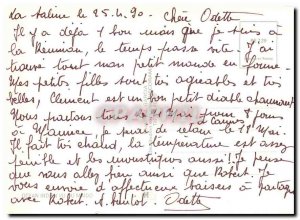 La Saline le 25.4.90 - Chère Odette
Il y a déjà 1 bon mois que je suis à
la Réunion, le temps passe vite. J'ai
trouvé tout mon petit monde en forme
Mes petites filles sont toi agréables et toi
belles, Clément est un bon petit diable charmant
Nous partons tous à pour 8 jours
à Maurice, je serai de retour le 18 Mai.
Il fait toi chaud, la température est assez
pénible et les moustiques aussi! Je pense
que vous allez bien ainsi que Robert. Je
vous envoie d'affectueux baisers à partager
avec Robert. A. Odette